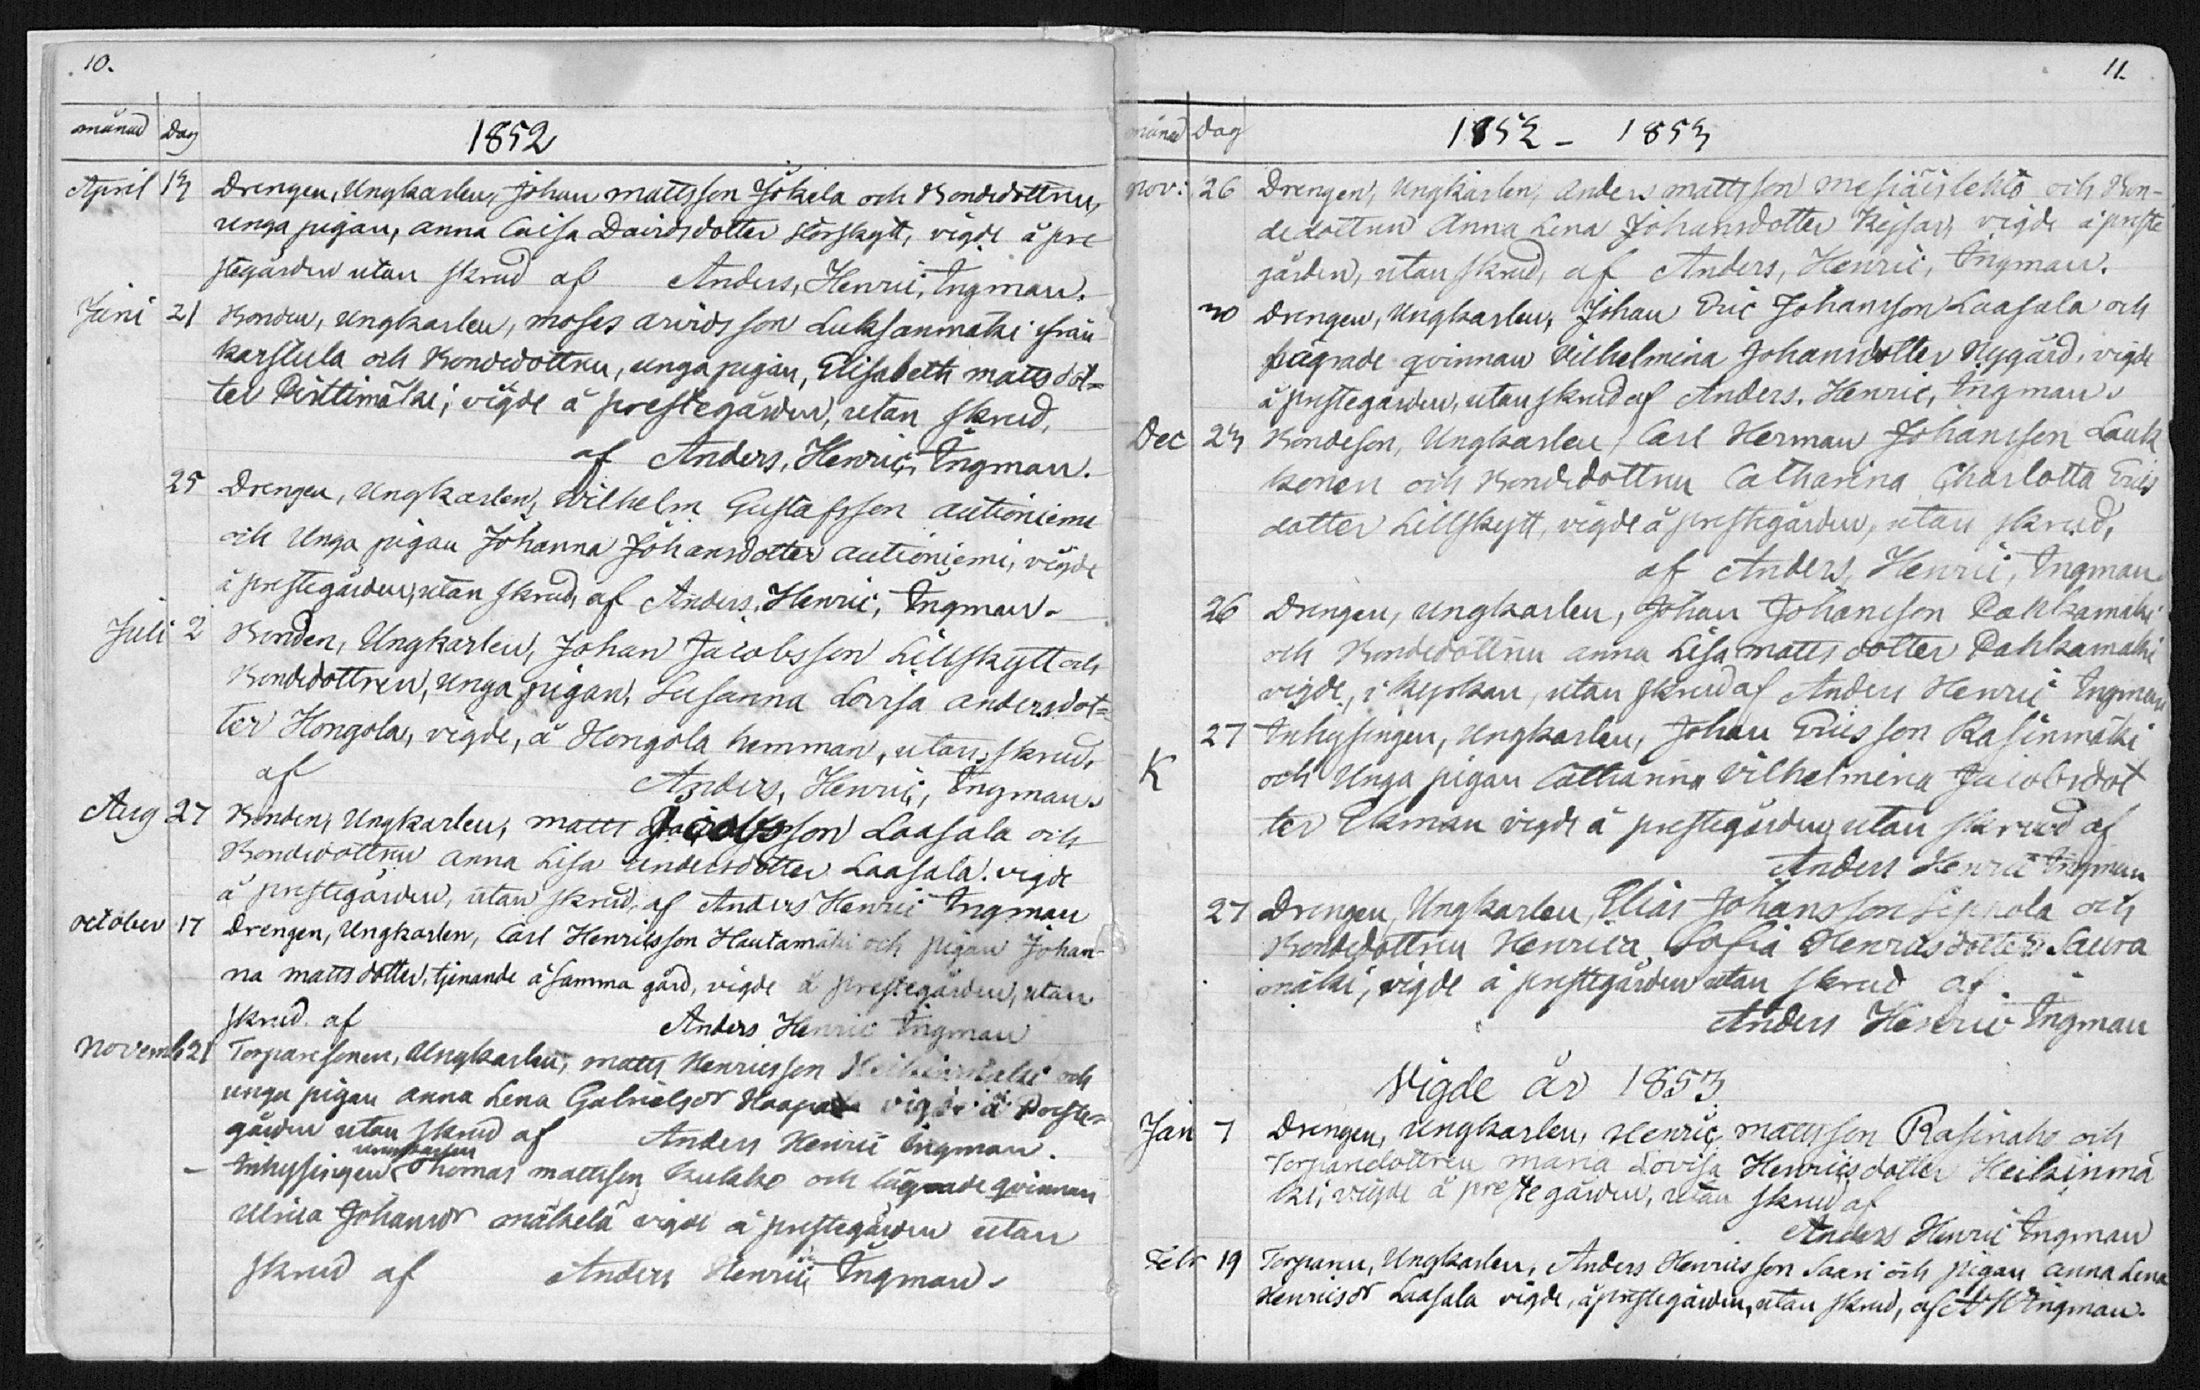 10.
månad Dag 1852
April 13 Drengen, Ungkarlen, Johan Mattsson Jokela och Bondedottren,
unga pigan, Anna Caisa Davidsdotter Storskytt, vigde å pre
stegården utan skrud af Anders, Henric, Ingman.
Juni 21 Bonden, Ungkarlen, Moses Arvidsson Luksanmäki från
Karstula och Bondedottren, unga pigan, Elisabeth Mattsdot=
ter Penttimäki, vigde å prestegården, utan skrud,
af Anders, Henric, Ingman.
25 Drengen, Ungkarlen, Wilhelm Gustafsson Autioniemi
och Unga pigan Johanna Johansdotter Autioniemi, vigde
å prestegården, utan skrud, af Anders, Henric, Ingman.
Juli 2 Bonden, Ungkarlen, Johan Jacobsson Lillskytt och
Bondedottren, unga pigan, Susanna Lovisa Andersdot=
ter Hongola, vigde, å Hongola hemman, utan skrud,
af Anders, Henric, Ingman.
Aug 27 Bonden, Ungkarlen, Matts Jacobsson Laasala och
Bondedottren Anna Lisa Andersdotter Laasala. vigde
å prestegården, utan skrud, af Anders Henric Ingman
October 17 Drengen, Ungkarlen, Carl Henricsson Hautamäki och pigan Johan-
na Mattsdotter, tjenande å samma gård, vigde å prestegården, utan
skrud af Anders Henric Ingman
Novemb 21 Torparesonen, Ungkarlen, Matts Henricsson Heikinmäki och
unga pigan Anna Lena Gabrielsdr vigde å Preste=
gården utan skrud af Anders Henric Ingman.
ungkarlen
– Inhysingen Thomas Mattsson Kukko och lägrade qvinnan
Ulrica Johansdr Mäkelä vigde å prestegården utan
skrud af Anders Henric Ingman.
11.
månad Dag 1852 – 1853
Nov: 26 Drengen, Ungkarlen, Anders Mattsson Mesiäislehto och Bon-
dedottren Anna Lena Johansdotter Kejsar, vigde å preste
gården, utan skrud, af Anders, Henric, Ingman.
30 Drengen, Ungkarlen, Johan Eric Johansson Laasala och
lägrade qvinnan Vilhelmina Johansdotter Nygård, vigde
å prestegården, utan skrud af Anders, Henric, Ingman.
Dec 23 Bondeson, Ungkarlen, Carl Herman Johansson Lauk
konen och Bondedottren Catharina Charlotta Erics
dotter Lillskytt, vigde å prestegården, utan skrud,
af Anders, Henric, Ingman.
26 Drengen, Ungkarlen, Johan Johansson Pahkamäki
och Bondedottren Anna Lisa Mattsdotter Pahkamäki
vigde, i kyrkan, utan skrud af Anders Henric Ingman
27 Inhysingen, Ungkarlen, Johan Ericsson Rasinmäki
K och Unga pigan Catharina Vilhelmina Jacobsdot
ter Ekman vigde å prestegården, utan skrud af
Anders Henric Ingman
27 Drengen, Ungkarlen, Elias Johansson Seppola och
Bondedottren Henrica Sofia Henricsdotter Saura
mäki, vigde å prestegården utan skrud af
Anders Henric Ingman
Vigde år 1853
Jan 7 Drengen, Ungkarlen, Henric Mattsson Rasinaho och
Torparedottren Maria Lovisa Henricsdotter Heikinmä
ki, vigde å prestegården, utan skrud af
Anders Henric Ingman
Febr 19 Torparen, Ungkarlen, Anders Henricsson Saari och pigan Anna Lena
Henricsdr Laasala vigde, å prestegården, utan skrud, af A H Ingman.